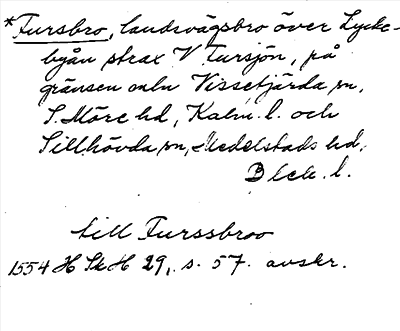 *Fursbro, landsvägsbro över Lycke-
byån strax V Fursjön, på
gränsen mln Vissefjärda sn,
S. Möre hd, Kalm. l. och
Sillhövda sn, Medelstads hd,
Blek. l.
till Furssbroo
1554 H Sk H 29, s. 57. avskr.